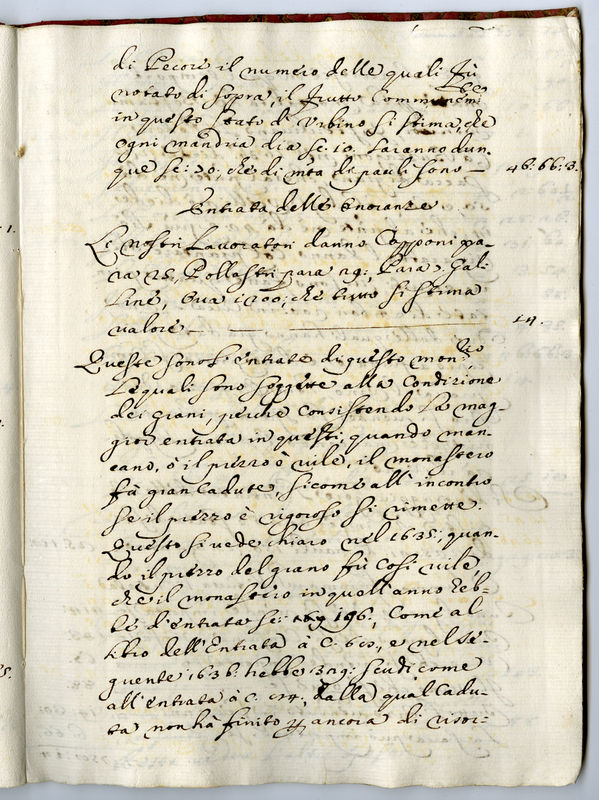 di Pecore il numero delle quali fù
notato di sopra, il frutto Communem.te
in questo stato d'Urbino si stima, che
ogni mandria dia sc: 10. Saranno dun-
que sc: 70: che di mta di pauli sono — 46:66:3.
Entrata delle Onoranze
Li nostri Lavoratori danno Capponi pa-
ra 25, Pollastri para 29: Para 7. Gal-
line, Ova 1200; che tutto si stima
valore — 14.
Queste sono l'entrate di questo mon.rio
Le quali sono soggette alla Condizione
dei grani, perche consistendo la mag-
gior entrata in questi, quando man-
cano, ò il prezzo è vile, il monastero
fù gran Cadute, sicome all'incontro
se il prezzo è rigoroso si rimette.
Questo si vede chiaro nel 1635; quan-
do il prezzo del grano fù così vile,
che il monastero in quell'anno heb-
be d'entrata sc: 196, Come al
libro dell'Entrata à C: 60, e nel se-
guente 1636 hebbe 329: scudi come
all'entrata à C. , dalla qual Cadu-
ta non hà finito ancora di risor-